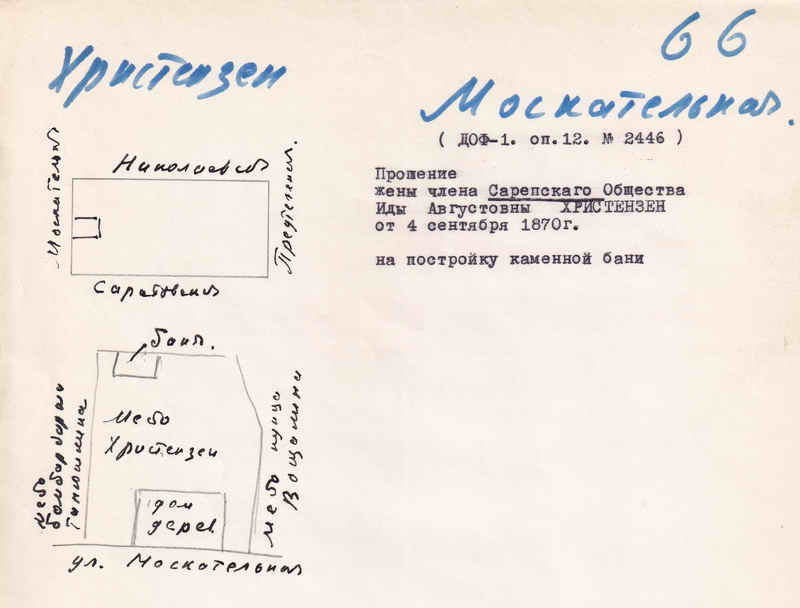 66
Христензен
Москательная.
( ДОФ-1. оп.12. № 2446 )
Прошение
жены члена Сарепскаго Общества
Иды Августовны ХРИСТЕНЗЕН
от 4 сентября 1870г.
на постройку каменной бани
Николаевская
Москательная
Предтеченская
Саратовская
баня.
место
Христензен
дом
дерев
место
Тимошкина
место купца
Вощинина
ул. Москательная